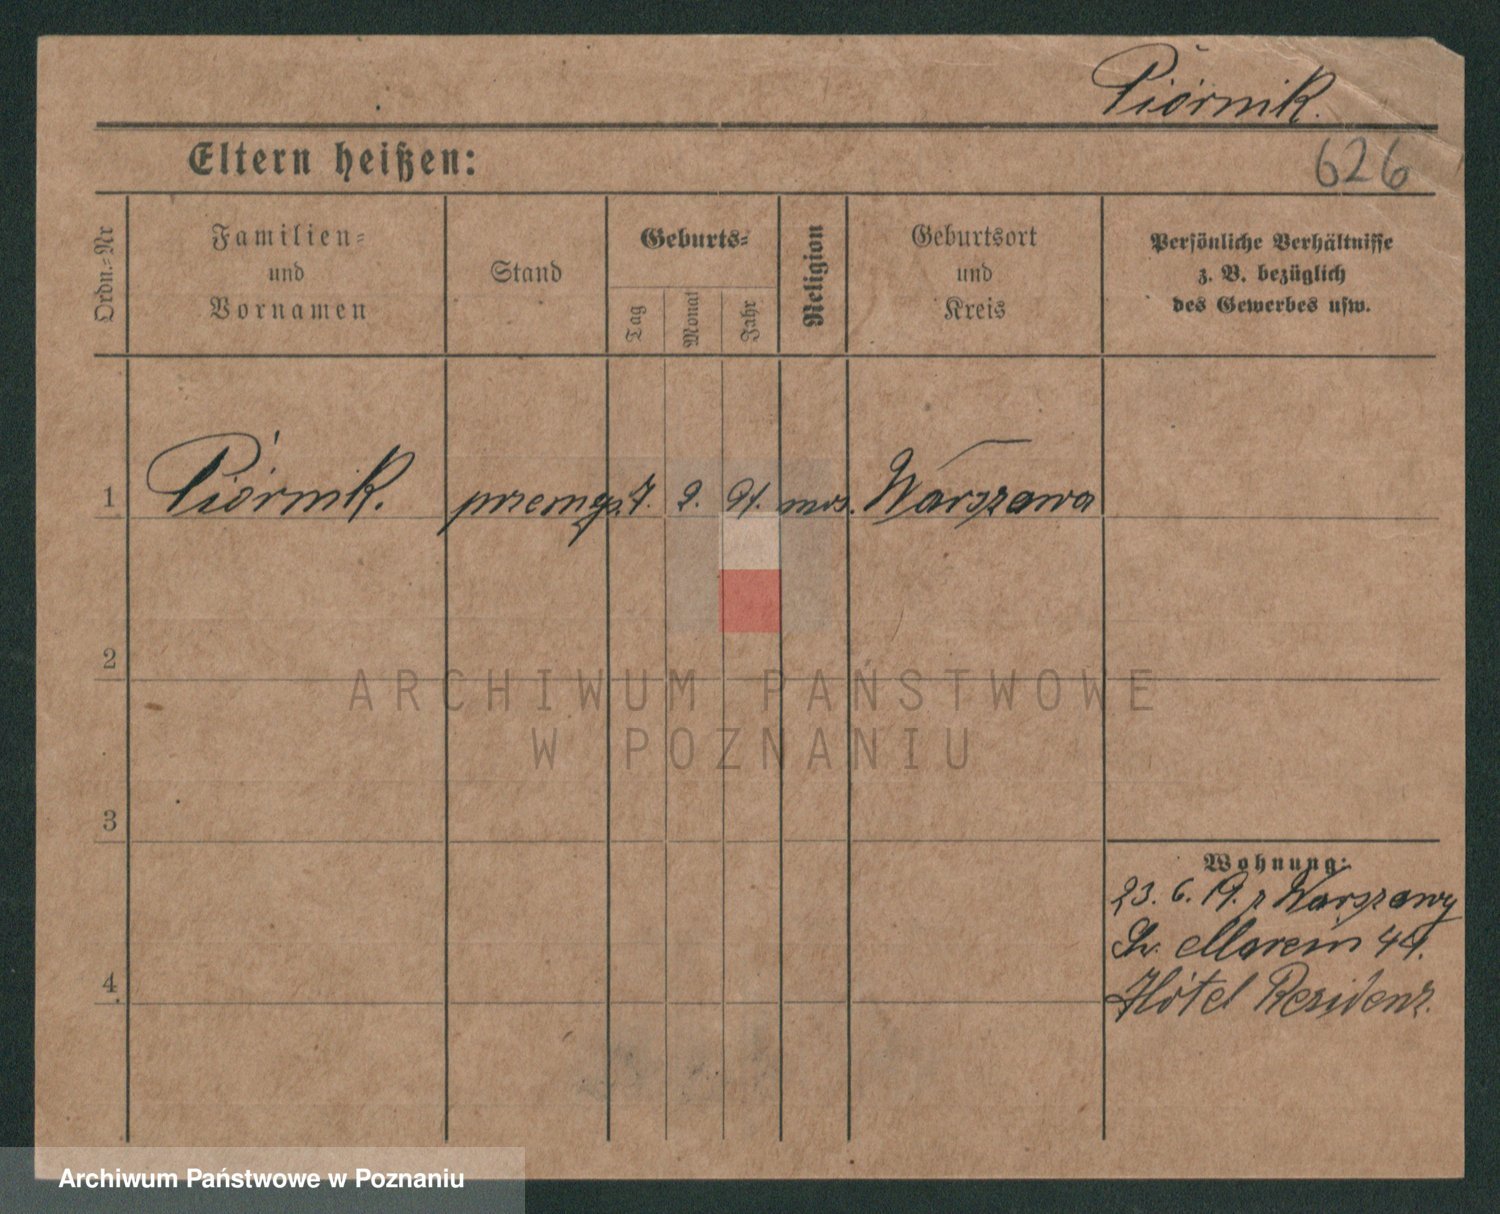 Piórnik.
Eltern heißen:
626
Ordn.-Nr
Familien-
und
Vornamen
Stand
Geburts-
Tag
Monat
Jahr
Religion
Geburtsort
und
Kreis
Persönliche Verhältnisse
z. B. bezüglich
des Gewerbes usw.
1 Piórnik. przemys. 7. 2. 91. mos. Warszawa
2
ARCHIWUM PAŃSTWOWE
W POZNANIU
3
Wohnung:
23. 6. 19. z Warszawy
Św. Marcin 44.
4
Hôtel Residenz.
Archiwum Państwowe w Poznaniu